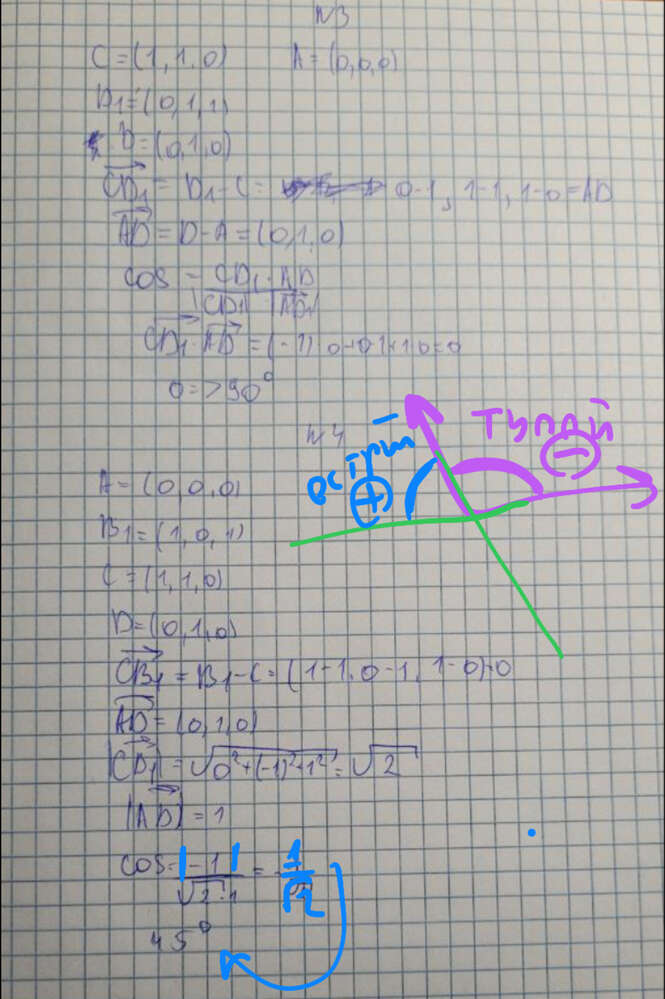 N3
C=(1,1,0) A=(0,0,0)
D1=(0,1,1)
D=(0,1,0)
CD1 = D1-C = 0-1, 1-1, 1-0=AD
AD = D-A = (0,1,0)
cos = CD1·AD
|CD1| |AD|
CD1·AD = (-1)·0+0·1+1·0=0
0=>90°
N4
тупой
острый
A=(0,0,0)
B1=(1,0,1)
C=(1,1,0)
D=(0,1,0)
CB1 = B1-C = (1-1, 0-1, 1-0)=0
AD = (0,1,0)
|CD1| = √0²+(-1)²+1² = √2
|AD| = 1
cos = |-1| = 1
√2·1 √2
45°